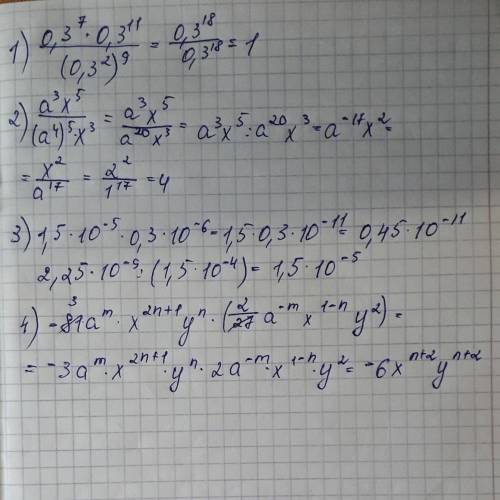 1) (0,3⁷ · 0,3¹¹)/(0,3²)⁹ = 0,3¹⁸/0,3¹⁸ = 1
2) a³x⁵/(a⁴)⁵x³ = a³x⁵/a²⁰x³ = a³x⁵ : a²⁰x³ = a⁻¹⁷x² =
= x²/a¹⁷ = 2²/1¹⁷ = 4
3) 1,5 · 10⁻⁵ · 0,3 · 10⁻⁶ = 1,5 · 0,3 · 10⁻¹¹ = 0,45 · 10⁻¹¹
2,25 · 10⁻⁹ : (1,5 · 10⁻⁴) = 1,5 · 10⁻⁵
4) -81³aᵐ · x²ⁿ⁺¹yⁿ · (2/27 a⁻ᵐ x¹⁻ⁿ y²) =
= -3aᵐ · x²ⁿ⁺¹ · yⁿ · 2a⁻ᵐ · x¹⁻ⁿ · y² = -6xⁿ⁺²yⁿ⁺²